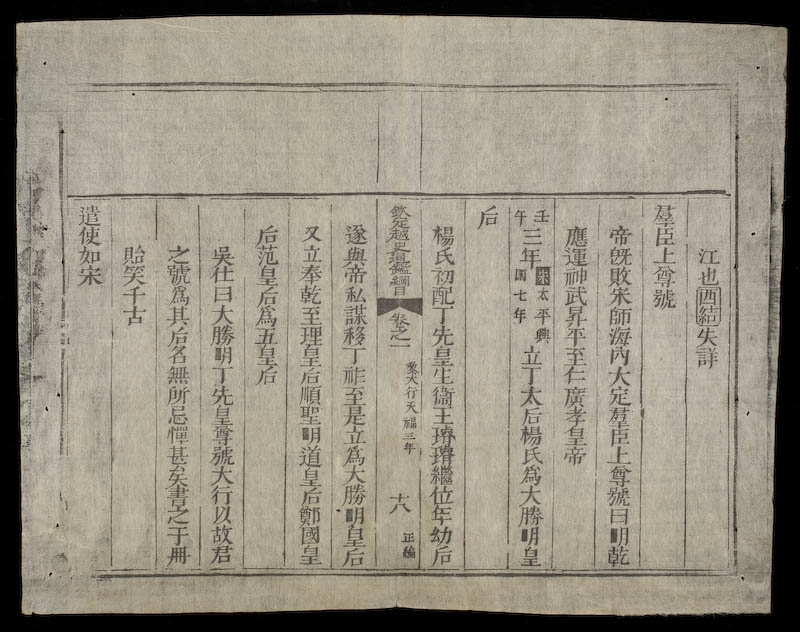 江也西結失詳
羣臣上尊號
帝旣敗宋師海內大定羣臣上尊號曰明乾
應運神武昇平至仁廣孝皇帝
壬午三年宋太平興國七年立丁太后楊氏爲大勝明皇
后
楊氏初配丁先皇生衞王璿璿繼位年幼后
欽定越史通鑑綱目卷之一
黎大行天福三年
十八
正編
遂與帝私謀移丁祚至是立爲大勝明皇后
又立奉乾至理皇后順聖明道皇后鄭國皇
后范皇后爲五皇后
吳仕曰大勝明丁先皇尊號大行以故君
之號爲其后名無所忌憚甚矣書之于册
貽笑千古
遣使如宋